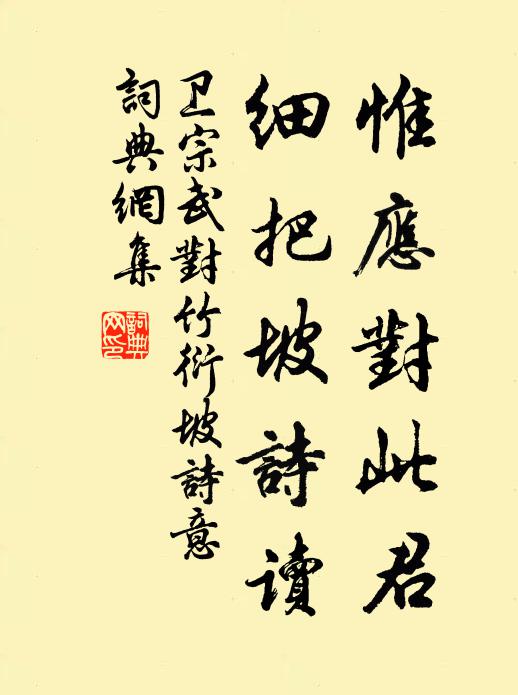 惟應對此君
細把坡詩讀
卫宗武對竹衍坡詩意
詞典網集
詞典网印